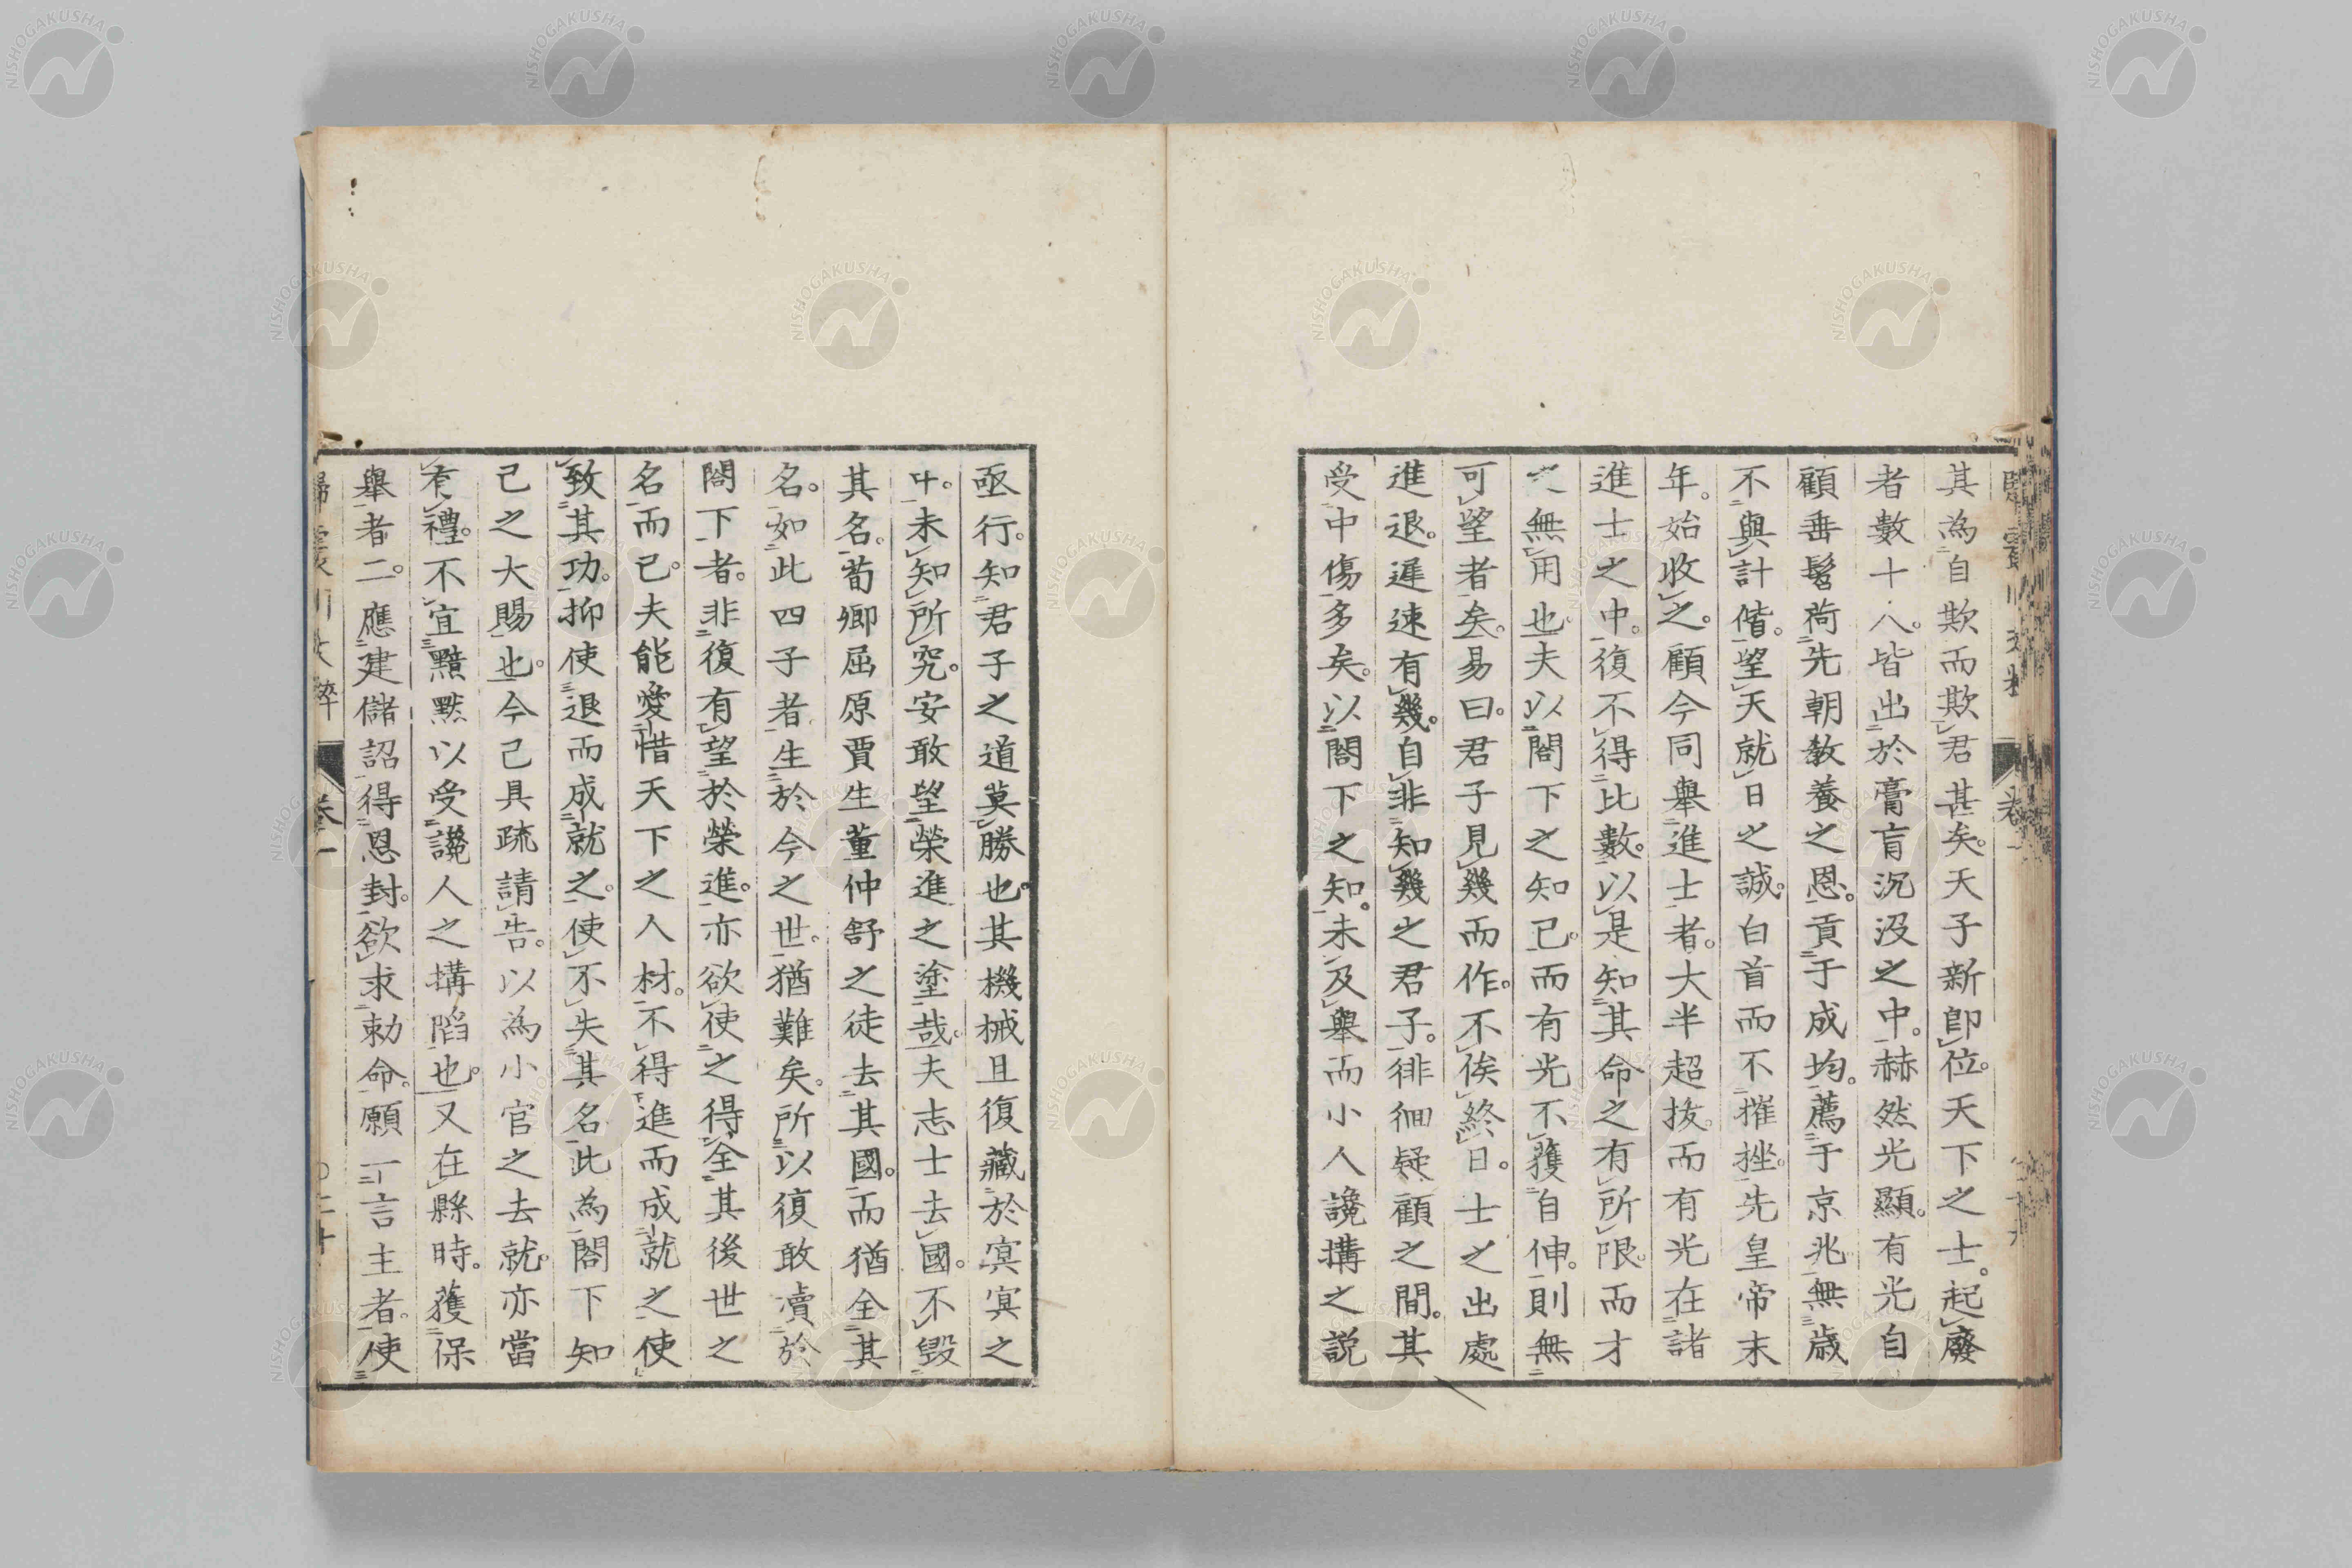 其為自欺而欺君甚矣。天子新即位。天下之士。起廢
者數十八。皆出於膏肓沉沒之中。赫然光顯。有光自
顧垂髫荷先朝教養之恩。貢于成均。薦于京兆無歲
不與計偕。望天就日之誠。白首而不摧挫。先皇帝末
年。始收之。顧今同舉進士者。大半超拔。而有光在諸
進士之中。復不得比數。以是知其命之有所限。而才
之無用也。夫以閤下之知己。而有光不獲自伸。則無
可望者矣。易曰。君子見幾而作。不俟終日。士之出處
進退。遲速有幾。自非知幾之君子。徘徊疑顧之間。其
受中傷多矣。以閤下之知。未及舉而小人讒搆之説
亟行。知君子之道莫勝也。其機械且復藏於冥冥之
中。未知所究。安敢望榮進之塗哉。夫志士去國。不毀
其名。荀卿屈原賈生董仲舒之徒去其國。而猶全其
名。如此四子者生於今之世。猶難矣。所以復敢凟於
閤下者。非復有望於榮進。亦欲使之得全其後世之
名而已。夫能愛惜天下之人材。不得進而成就之使
致其功。抑使退而成就之。使不失其名此為閤下知
己之大賜也。今己具疏請告。以為小官之去就。亦當
有禮。不宜黯黙以受讒人之搆陷也。又在縣時。獲保
舉者二。應建儲詔得恩封。欲求勅命。願一言主者。使
歸震川文粹
卷一